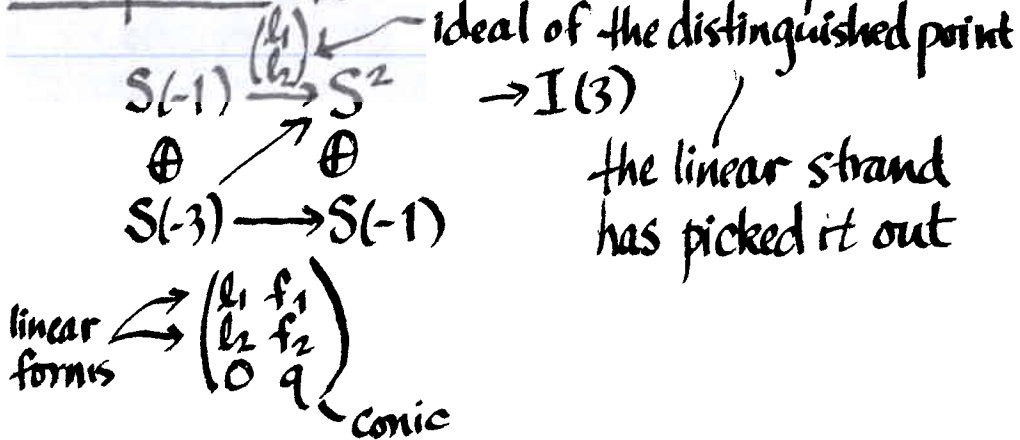 (l₁ l₂) ideal of the distinguished point
S(-1) → S² → I(3)
⊕ ⊕ the linear strand
S(-3) → S(-1) has picked it out
linear forms
(l₁ f₁
l₂ f₂
0 q)
conic